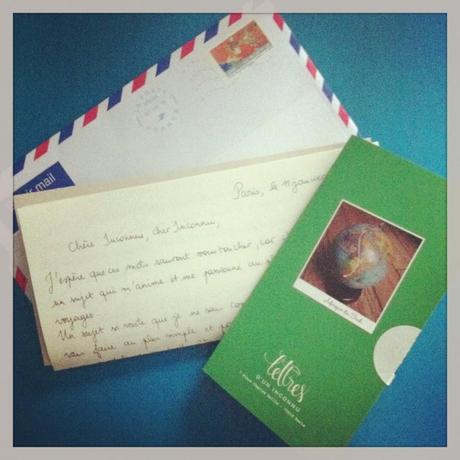 air mail
Paris, le 11 janvier
Chère Inconnue, cher Inconnu,
J'espère que ces mots sauront vous toucher, car
un sujet qui m'anime et me passionne au pl
voyages.
Un sujet si vaste que je ne sau
vais faire au plus simple et
Afrique du Sud
Lettres
D'UN INCONNU